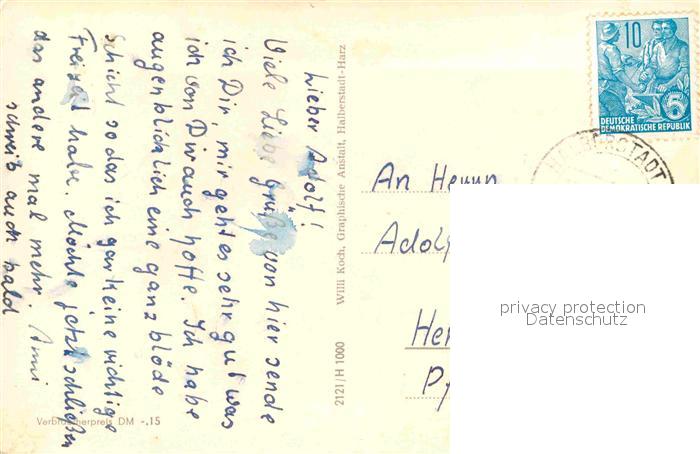 Lieber Adolf!
Viele Liebe Grüße von hier sende
ich Dir, mir geht es sehr gut was
ich von Dir auch hoffe. Ich habe
augenblicklich eine ganz blöde
Schicht so das ich gar keine richtige
Freizeit habe. Möchte jetzt schließen
das andere mal mehr.
schreib auch bald
Verbraucherpreis DM -.15
2121/H 1000 Willi Koch, Graphische Anstalt, Halberstadt-Harz
10
DEUTSCHE
DEMOKRATISCHE REPUBLIK
HALBERSTADT
An Herrn
Adolf
privacy protection
Datenschutz